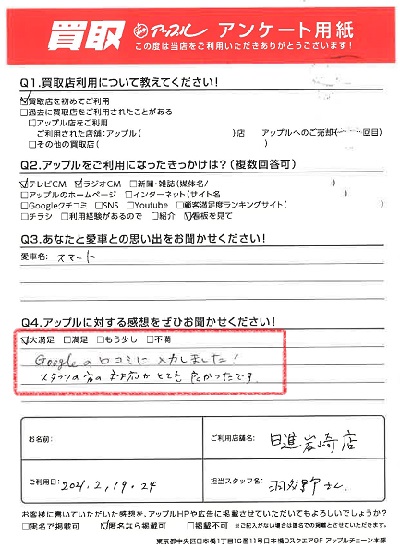 買取 アップル アンケート用紙
この度は当店をご利用いただきありがとうございます!
Q1.買取店利用について教えてください!
☑買取店を初めてご利用
□過去に買取店をご利用されたことがある
□アップル店をご利用
ご利用された店舗:アップル( )店 アップルへのご売却( 回目)
□その他の買取店( )
Q2.アップルをご利用になったきっかけは?(複数回答可)
☑テレビCM ☑ラジオCM □新聞・雑誌(媒体名/ )
□アップルのホームページ □インターネット(サイト名 )
□Googleクチコミ □SNS □Youtube □顧客満足度ランキングサイト( )
□チラシ □利用経験があるので □紹介 ☑看板を見て
Q3.あなたと愛車との思い出をお聞かせください!
愛車名: スマート
Q4.アップルに対する感想をぜひお聞かせください!
☑大満足 □満足 □もう少し □不満
Googleの口コミに入力しました!
スタッフの方の対応がとても良かったです。
お名前:
ご利用店舗名: 日進岩崎店
ご利用日:
担当スタッフ名:
お客様に書いていただいた感想を、アップルHPや広告に掲載させていただいてもよろしいでしょうか?
□実名で掲載可 ☑匿名なら掲載可 □掲載不可 ※ご記入がない場合は匿名での掲載とさせていただきます。